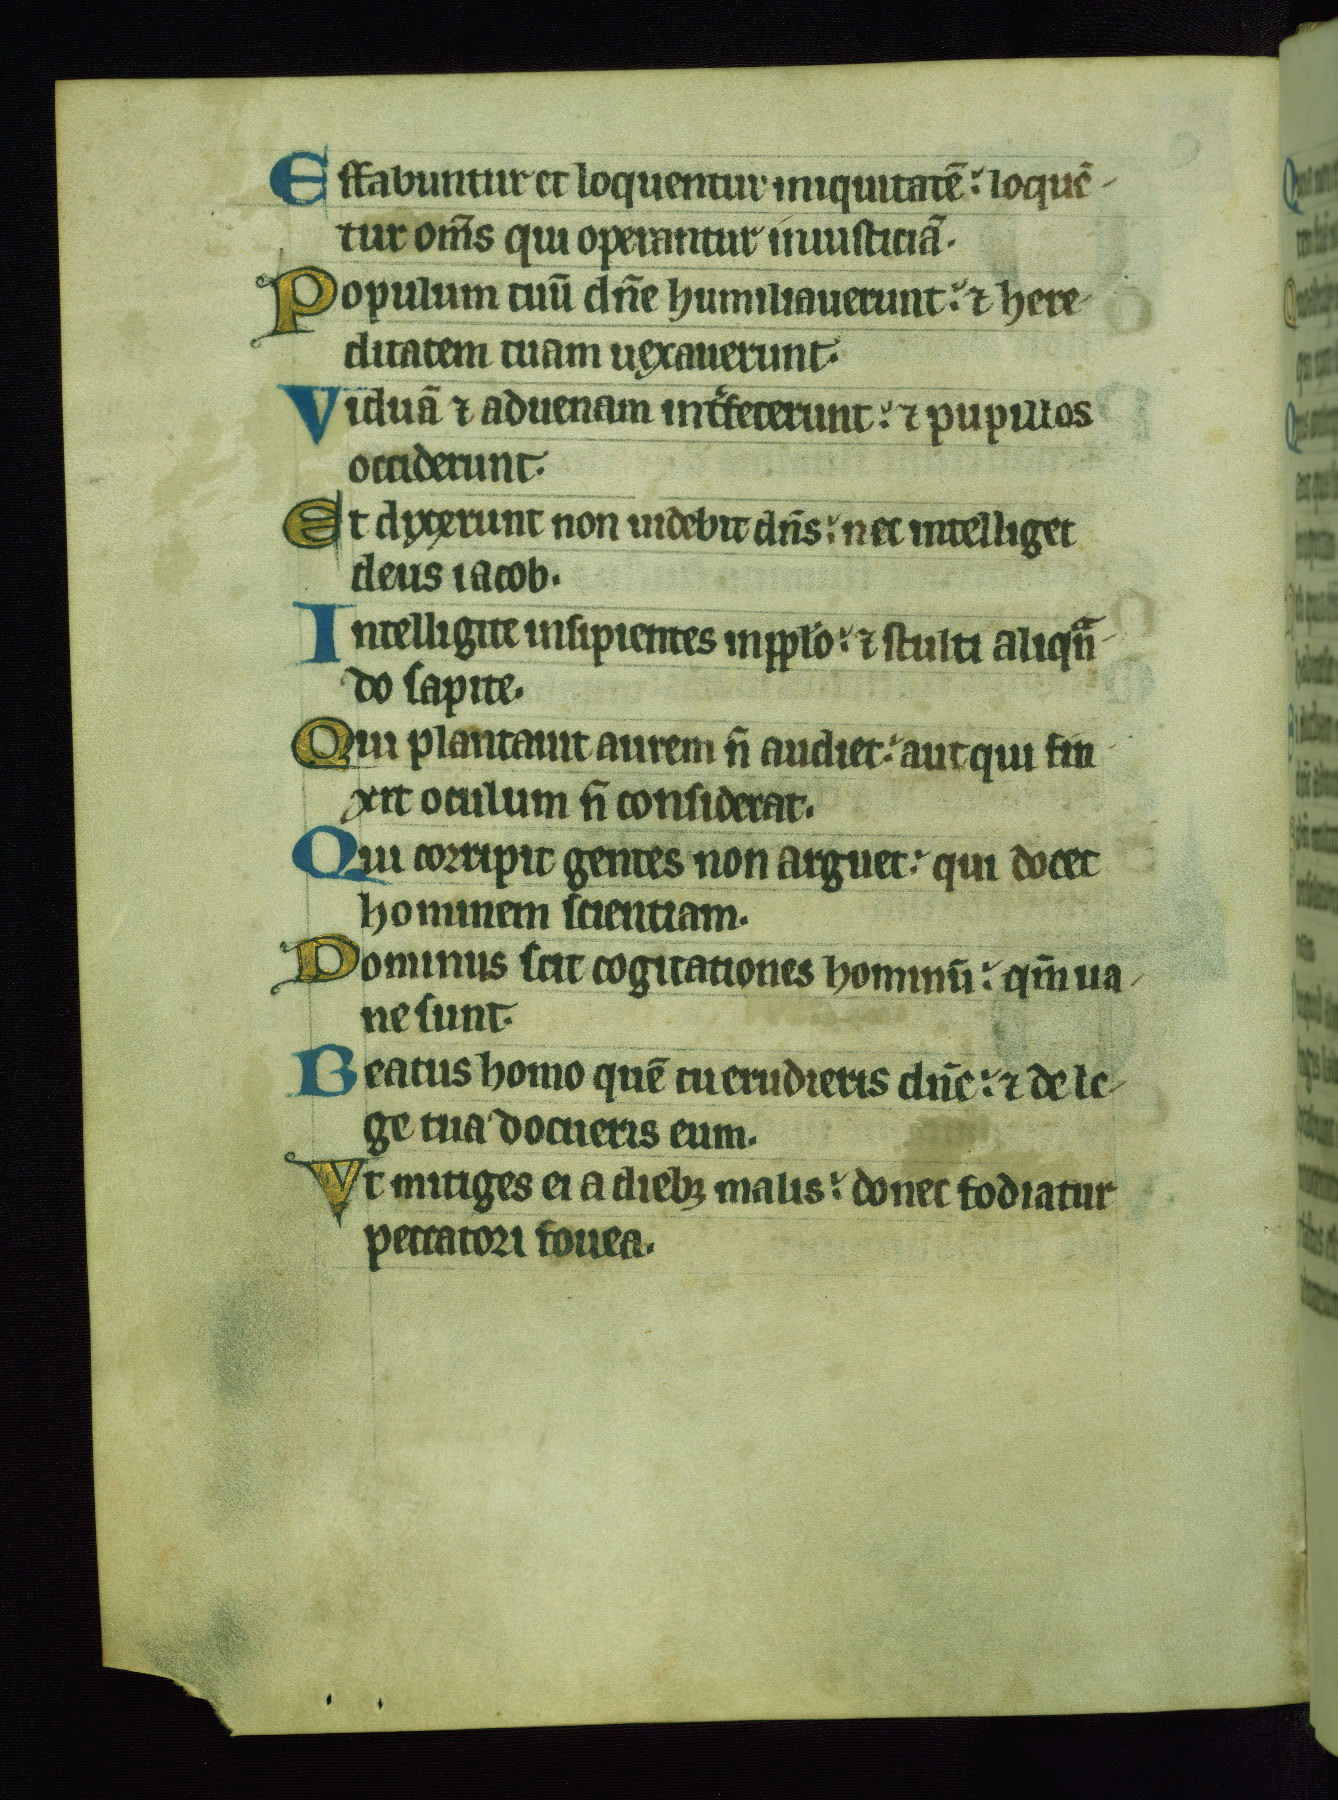 Effabuntur et loquentur iniquitatē: loquē-
tur om̄s qui operantur iniusticiā.
Populum tuū dn̄e humiliauerunt: ⁊ here-
ditatem tuam uexauerunt.
Viduā ⁊ aduenam int̾fecerunt: ⁊ pupillos
occiderunt.
Et dixerunt non uidebit dn̄s: nec intelliget
deus iacob.
Intelligite insipientes in pp̄lo: ⁊ stulti aliqᵃn̄-
do sapite.
Qui plantauit aurem n̄ audiet: aut qui fin-
xit oculum n̄ considerat.
Qui corripit gentes non arguet: qui docet
hominem scientiam.
Dominus scit cogitationes hominū: qm̄ ua-
ne sunt.
Beatus homo quē tu erudieris dn̄e: ⁊ de le-
ge tua docueris eum.
Vt mitiges ei a diebꝫ malis: donec fodiatur
peccatori fouea.